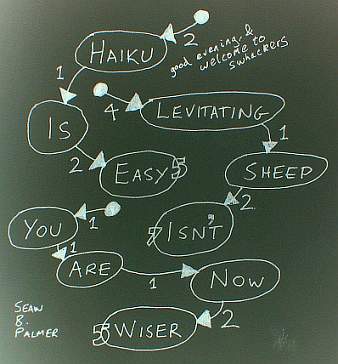 HAIKU 2
good evening & welcome to swhackers
1
4 LEVITATING
IS
1
2 EASY 5
SHEEP
2
YOU 1
7 ISN'T
1
ARE 1 NOW
2
5 WISER
SEAN
B.
PALMER